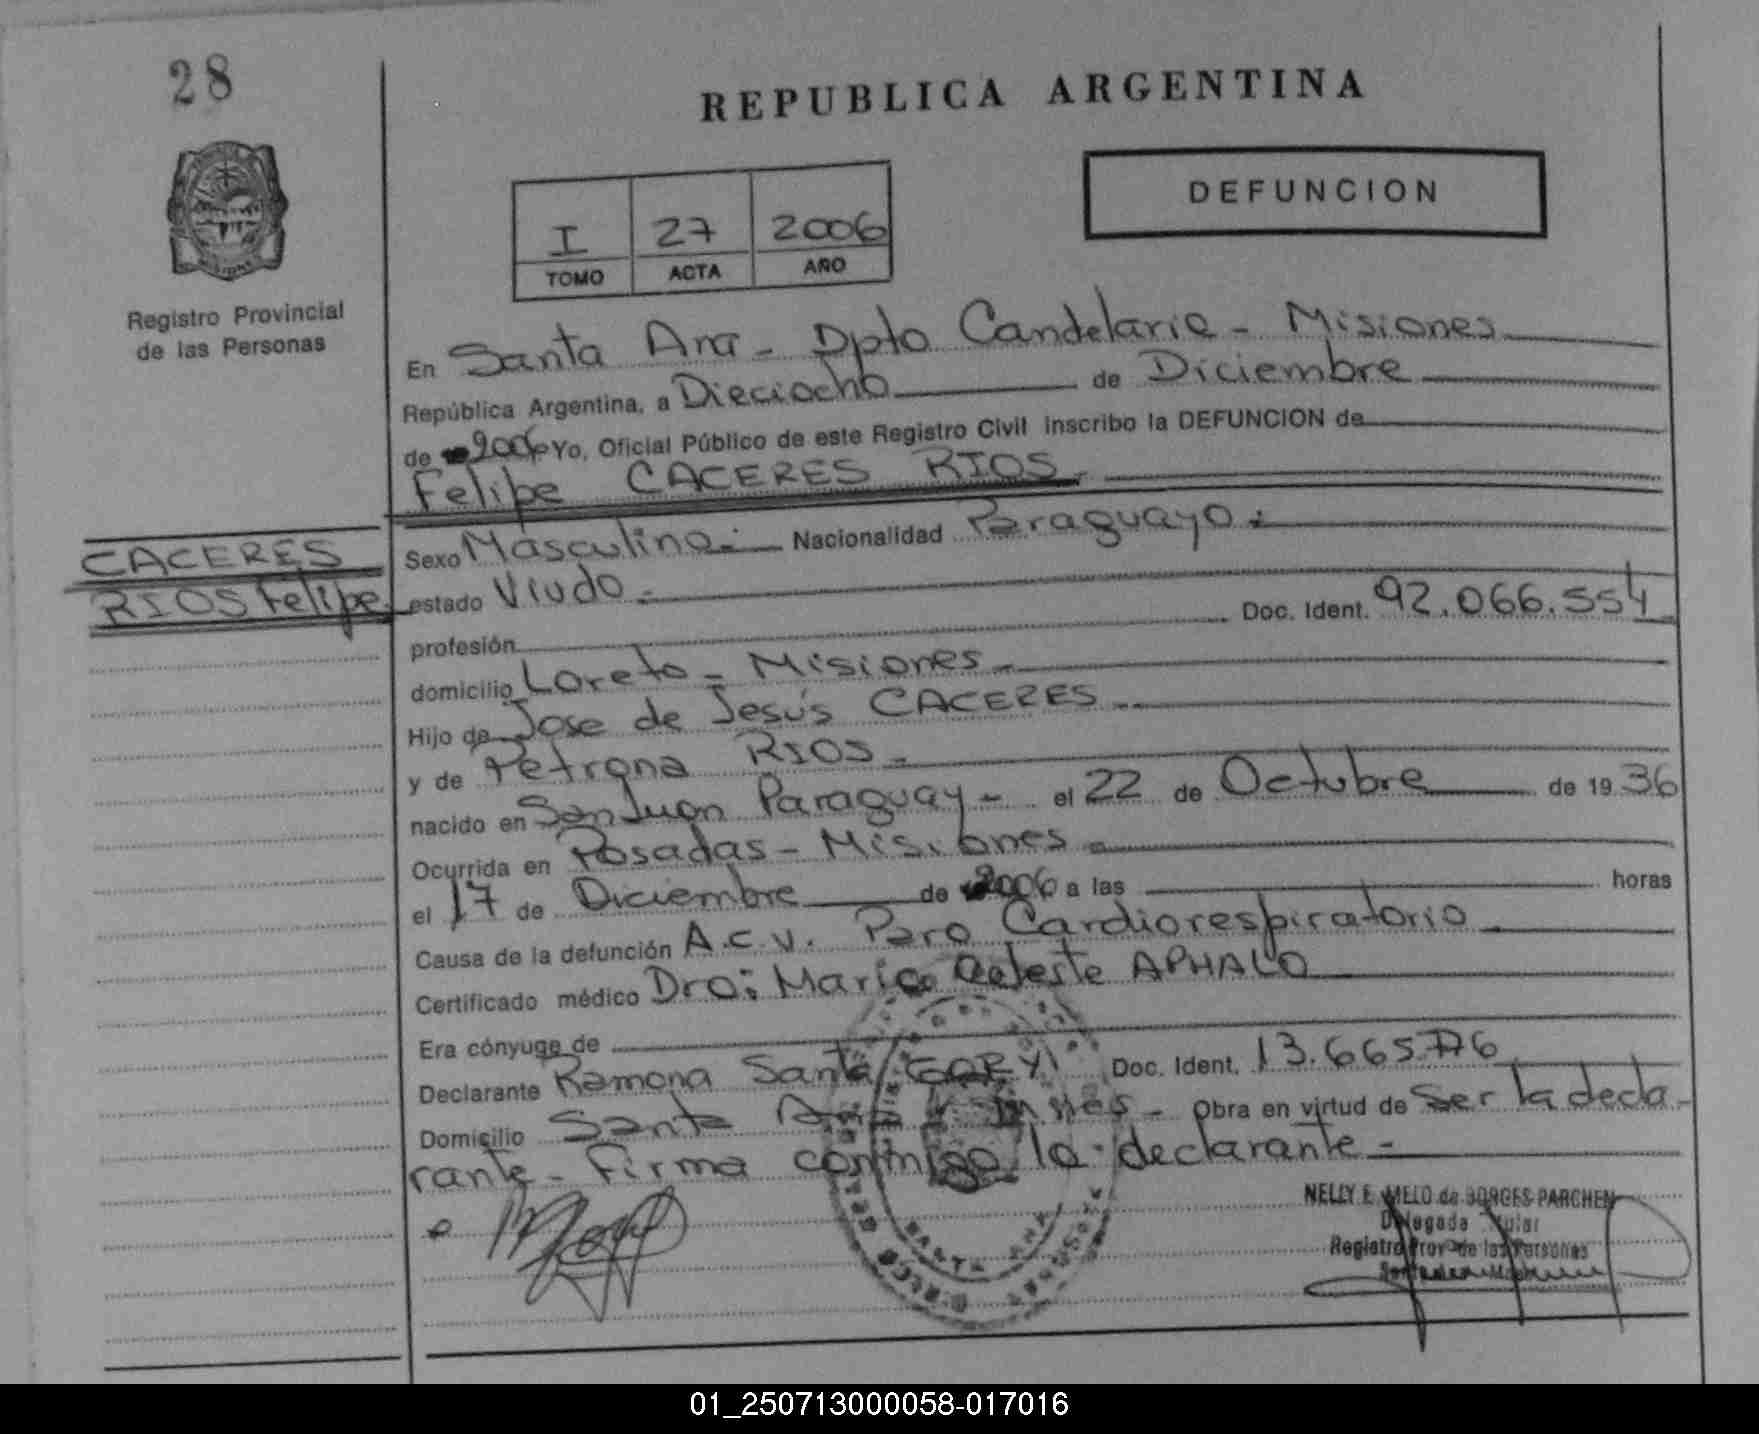 28
REPUBLICA ARGENTINA
DEFUNCION
I 27 2006
TOMO ACTA AÑO
Registro Provincial
de las Personas
En Santa Ana - Dpto Candelaria - Misiones
República Argentina, a Dieciocho de Diciembre
de 2006 Yo, Oficial Público de este Registro Civil inscribo la DEFUNCION de
Felipe CACERES RIOS.
CACERES
RIOS Felipe
Sexo Masculino.- Nacionalidad Paraguayo.-
estado Viudo.-
profesión Doc. Ident. 92.066.554
domicilio Loreto - Misiones -
Hijo de Jose de Jesús CACERES -
y de Petrona RIOS -
nacido en San Juan Paraguay - el 22 de Octubre de 1936
Ocurrida en Posadas - Misiones -
el 17 de Diciembre de 2006 a las horas
Causa de la defunción A.C.V. Paro Cardiorespiratorio
Certificado médico Dra: Maria Celeste APHALO
Era cónyuge de
Declarante Ramona Santa Doc. Ident. 13.665.776
Domicilio Santa Ana - Obra en virtud de Ser la decla-
rante - Firma conmigo la declarante -
NELLY E. MELO de BORGES PARCHEN
Delegada Titular
Registro Prov. de las Personas
SANTA ANA
01_250713000058-017016